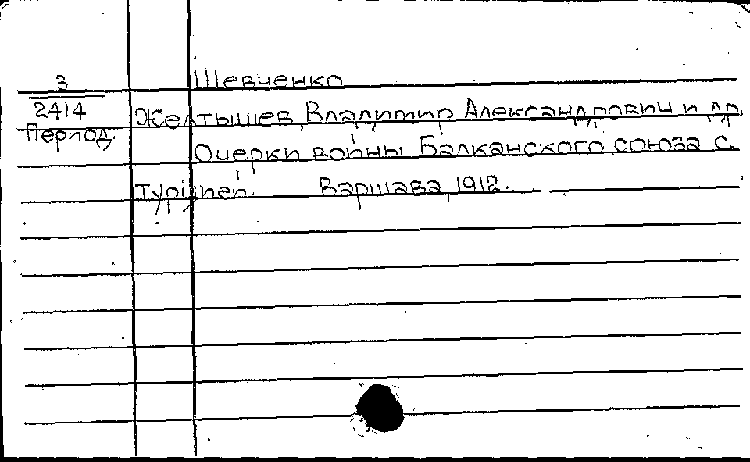 Шевченко
3
2414
Период.
Желтышев, Владимир Александрович и др.
Очерки войны Балканского союза с
Турцией. Варшава, 1912.